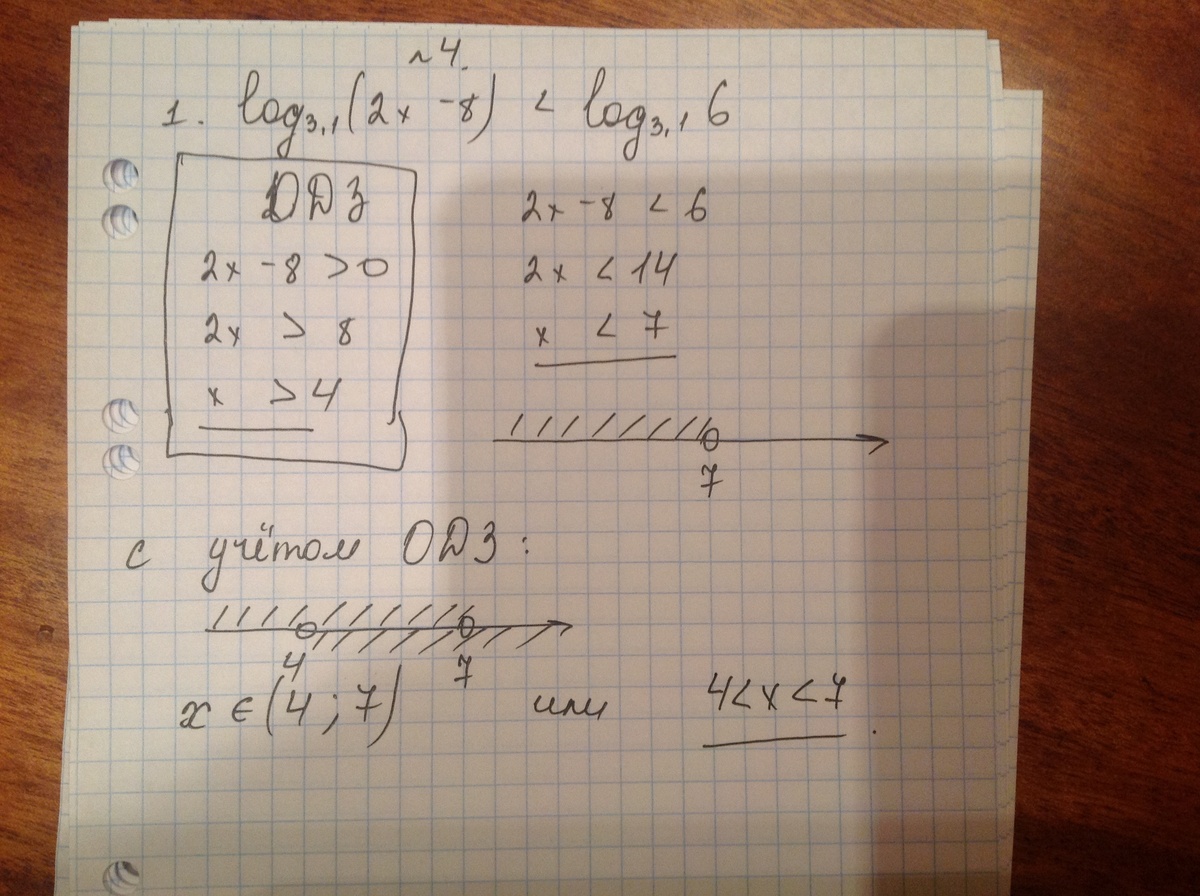 ~4.
1. log₃,₁(2x -8) < log₃,₁ 6
ОДЗ
2x -8 >0
2x > 8
x >4
2x -8 < 6
2x < 14
x < 7
7
с учётом ОДЗ:
4 7
x ∈ (4 ; 7) или 4<x<7.